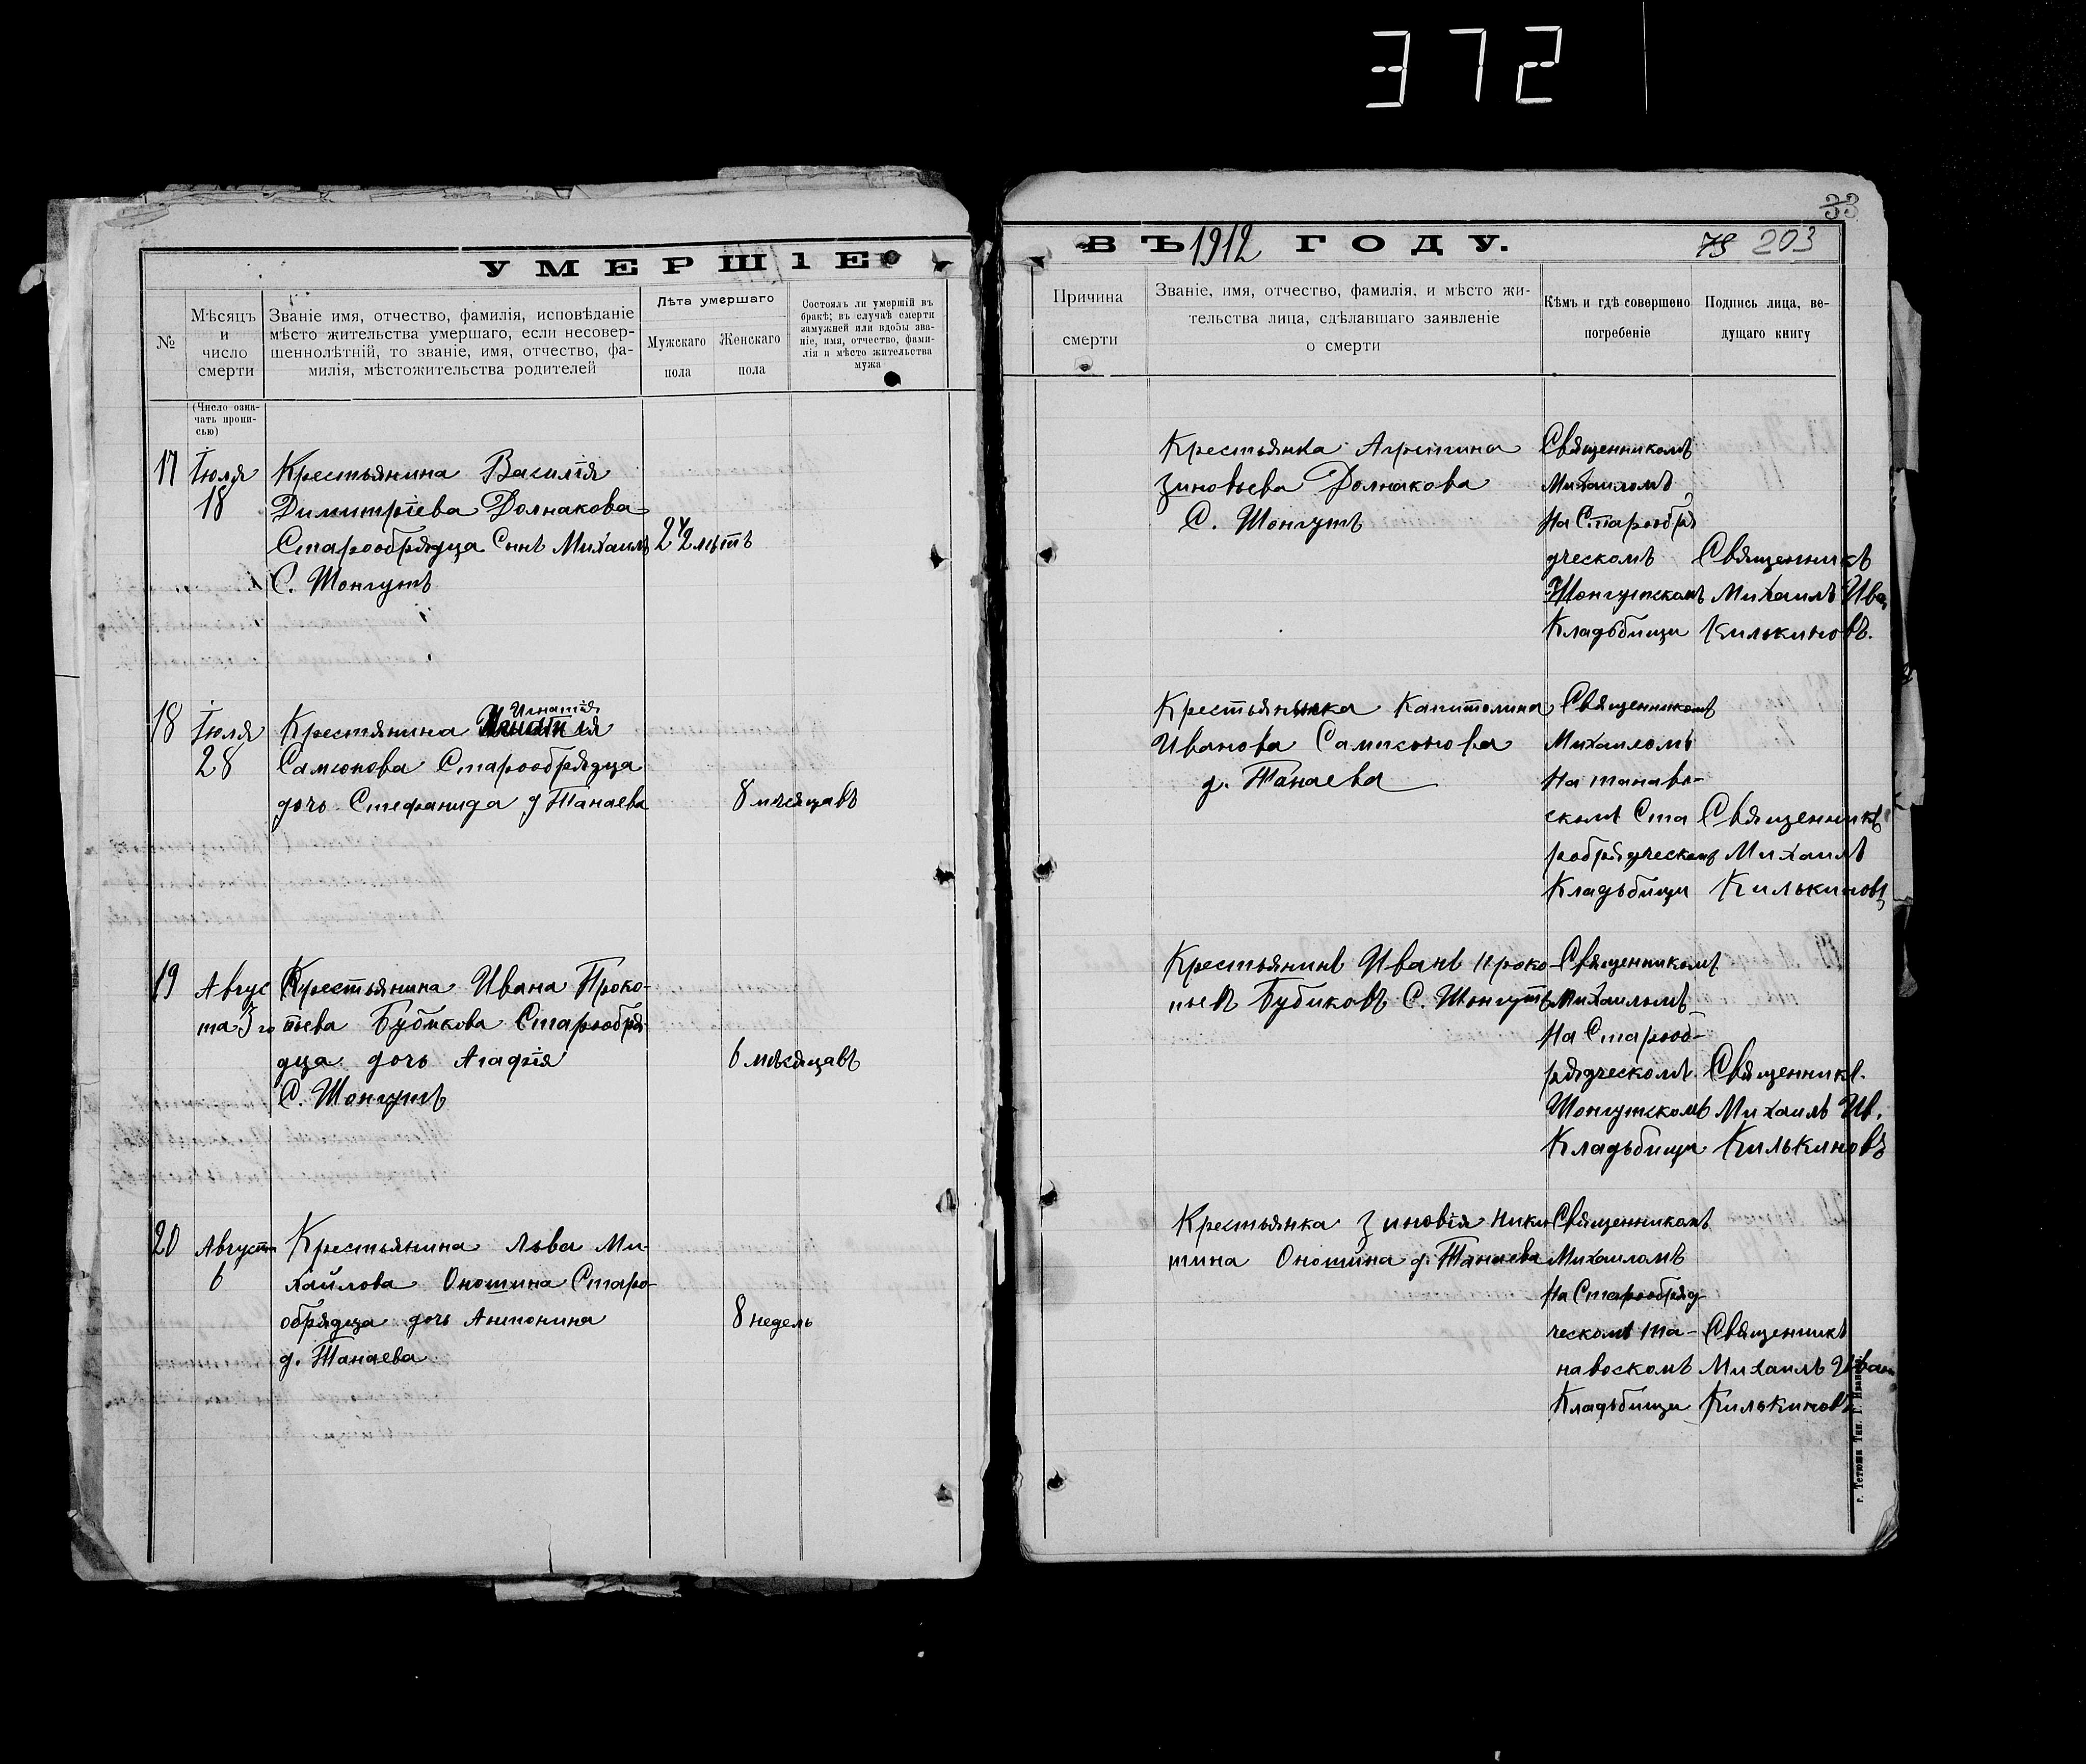 372
33
УМЕРШІЕ
ВЪ 1912 ГОДУ.
75 203
№
Мѣсяцъ
и
число
смерти
Званіе имя, отчество, фамилія, исповѣданіе
мѣсто жительства умершаго, если несовер-
шеннолѣтній, то званіе, имя, отчество, фа-
милія, мѣстожительства родителей
Лѣта умершаго
Мужскаго
пола
Женскаго
пола
Состоялъ ли умершій въ
бракѣ; въ случаѣ смерти
замужней или вдовы зва-
ніе, имя, отчество, фами-
лія и мѣсто жительства
мужа
Причина
смерти
Званіе, имя, отчество, фамилія, и мѣсто жи-
тельства лица, сдѣлавшаго заявленіе
о смерти
Кѣмъ и гдѣ совершено
погребеніе
Подпись лица, ве-
дущаго книгу
(Число озна-
чать пропи-
сью)
17
Іюля
18
Крестьянина Василія
Димитріева Долнакова
Старообрядца Сынъ Михаилъ
С. Шонгутъ
2 1/2 лѣтъ
Крестьянка Агрипина
Зиновьева Долнакова
С. Шонгутъ
Священникомъ
Михаиломъ
На Старообря
дческомъ
Шонгутскомъ
Кладьбищи
Священникъ
Михаилъ Ива
Килькиновъ.
18
Іюля
28
Игнатія
Крестянина
Самсонова Старообрядца
дочь Стефанида д Танаева
8 мѣсяцавъ
Крестьянка Капитолина
Иванова Самсонова
д. Танаева
Священникомъ
Михаиломъ
На танаво-
скомъ Ста
рообрядческомъ
Кладьбищи
Священникъ
Михаилъ
Килькиновъ
19
Авгус
та 3го
Крестьянина Ивана Проко-
пьева Бубикова Старообря-
дца дочь Агафія
С. Шонгутъ
6 мѣсяцавъ
Крестьянинъ Иванъ Проко-
пьевъ Бубиковъ С. Шонгутъ
Священникомъ
Михаиломъ
На Старооб-
рядческомъ
Шонгутскомъ
Кладьбищи
Священникъ.
Михаилъ Ив.
Килькиновъ
20
Августа
6
Крестьянина Льва Ми-
хайлова Оношина Старо-
обрядца дочь Антонина
д. Танаева
8 недель
Крестьянка Зиновія Ники
тина Оношина д. Танаева
Священникомъ
Михаиломъ
На Старообряд-
ческомъ та-
навоскомъ
Кладьбищи
Священникъ
Михаилъ Иван
Килькиновъ
г. Тетюши Тип. Г. Иванова.